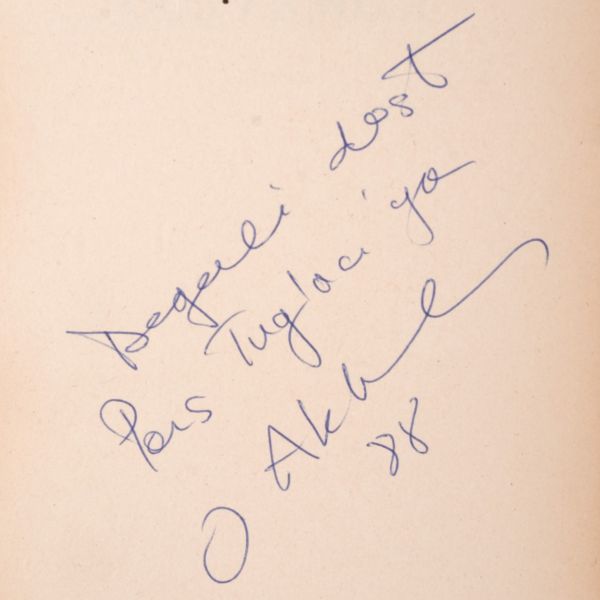 Değerli dost
Pars Tuğlacı'ya
O Akbal
88